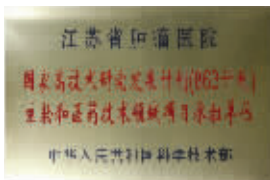 江苏省和涵医院
国家高技术研究发展计划(863计划)
生物和医药技术领域项目承担单位
中华人民共和国科学技术部